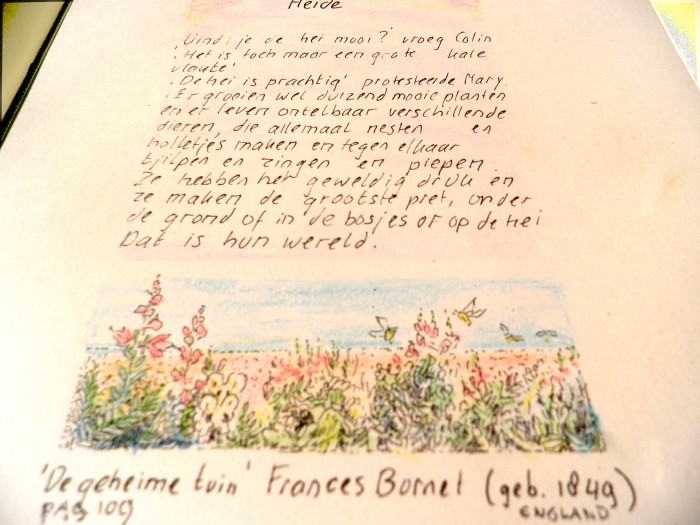 Heide
'Vind je de hei mooi?' vroeg Colin
'Het is toch maar een grote kale
vlakte'
'De hei is prachtig' protesteerde Mary.
'Er groeien wel duizend mooie planten
en er leven ontelbaar verschillende
dieren, die allemaal nesten en
holletjes maken en tegen elkaar
tjilpen en zingen en piepen.
Ze hebben het geweldig druk en
ze maken de grootste pret, onder
de grond of in de bosjes of op de hei
Dat is hun wereld'.
'De geheime tuin' Frances Bornet (geb. 1849)
PAG 109 ENGLAND